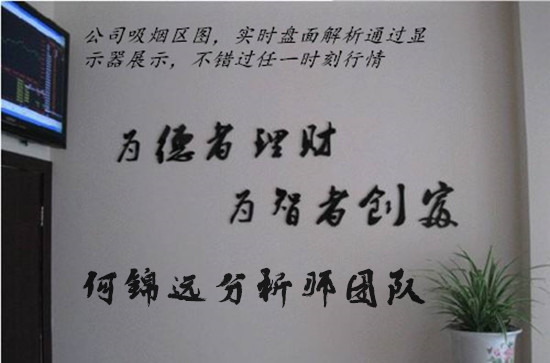 公司吸烟区图，实时盘面解析通过显
示器展示，不错过任一时刻行情
为德者理财
为智者创富
何锦远分析师团队